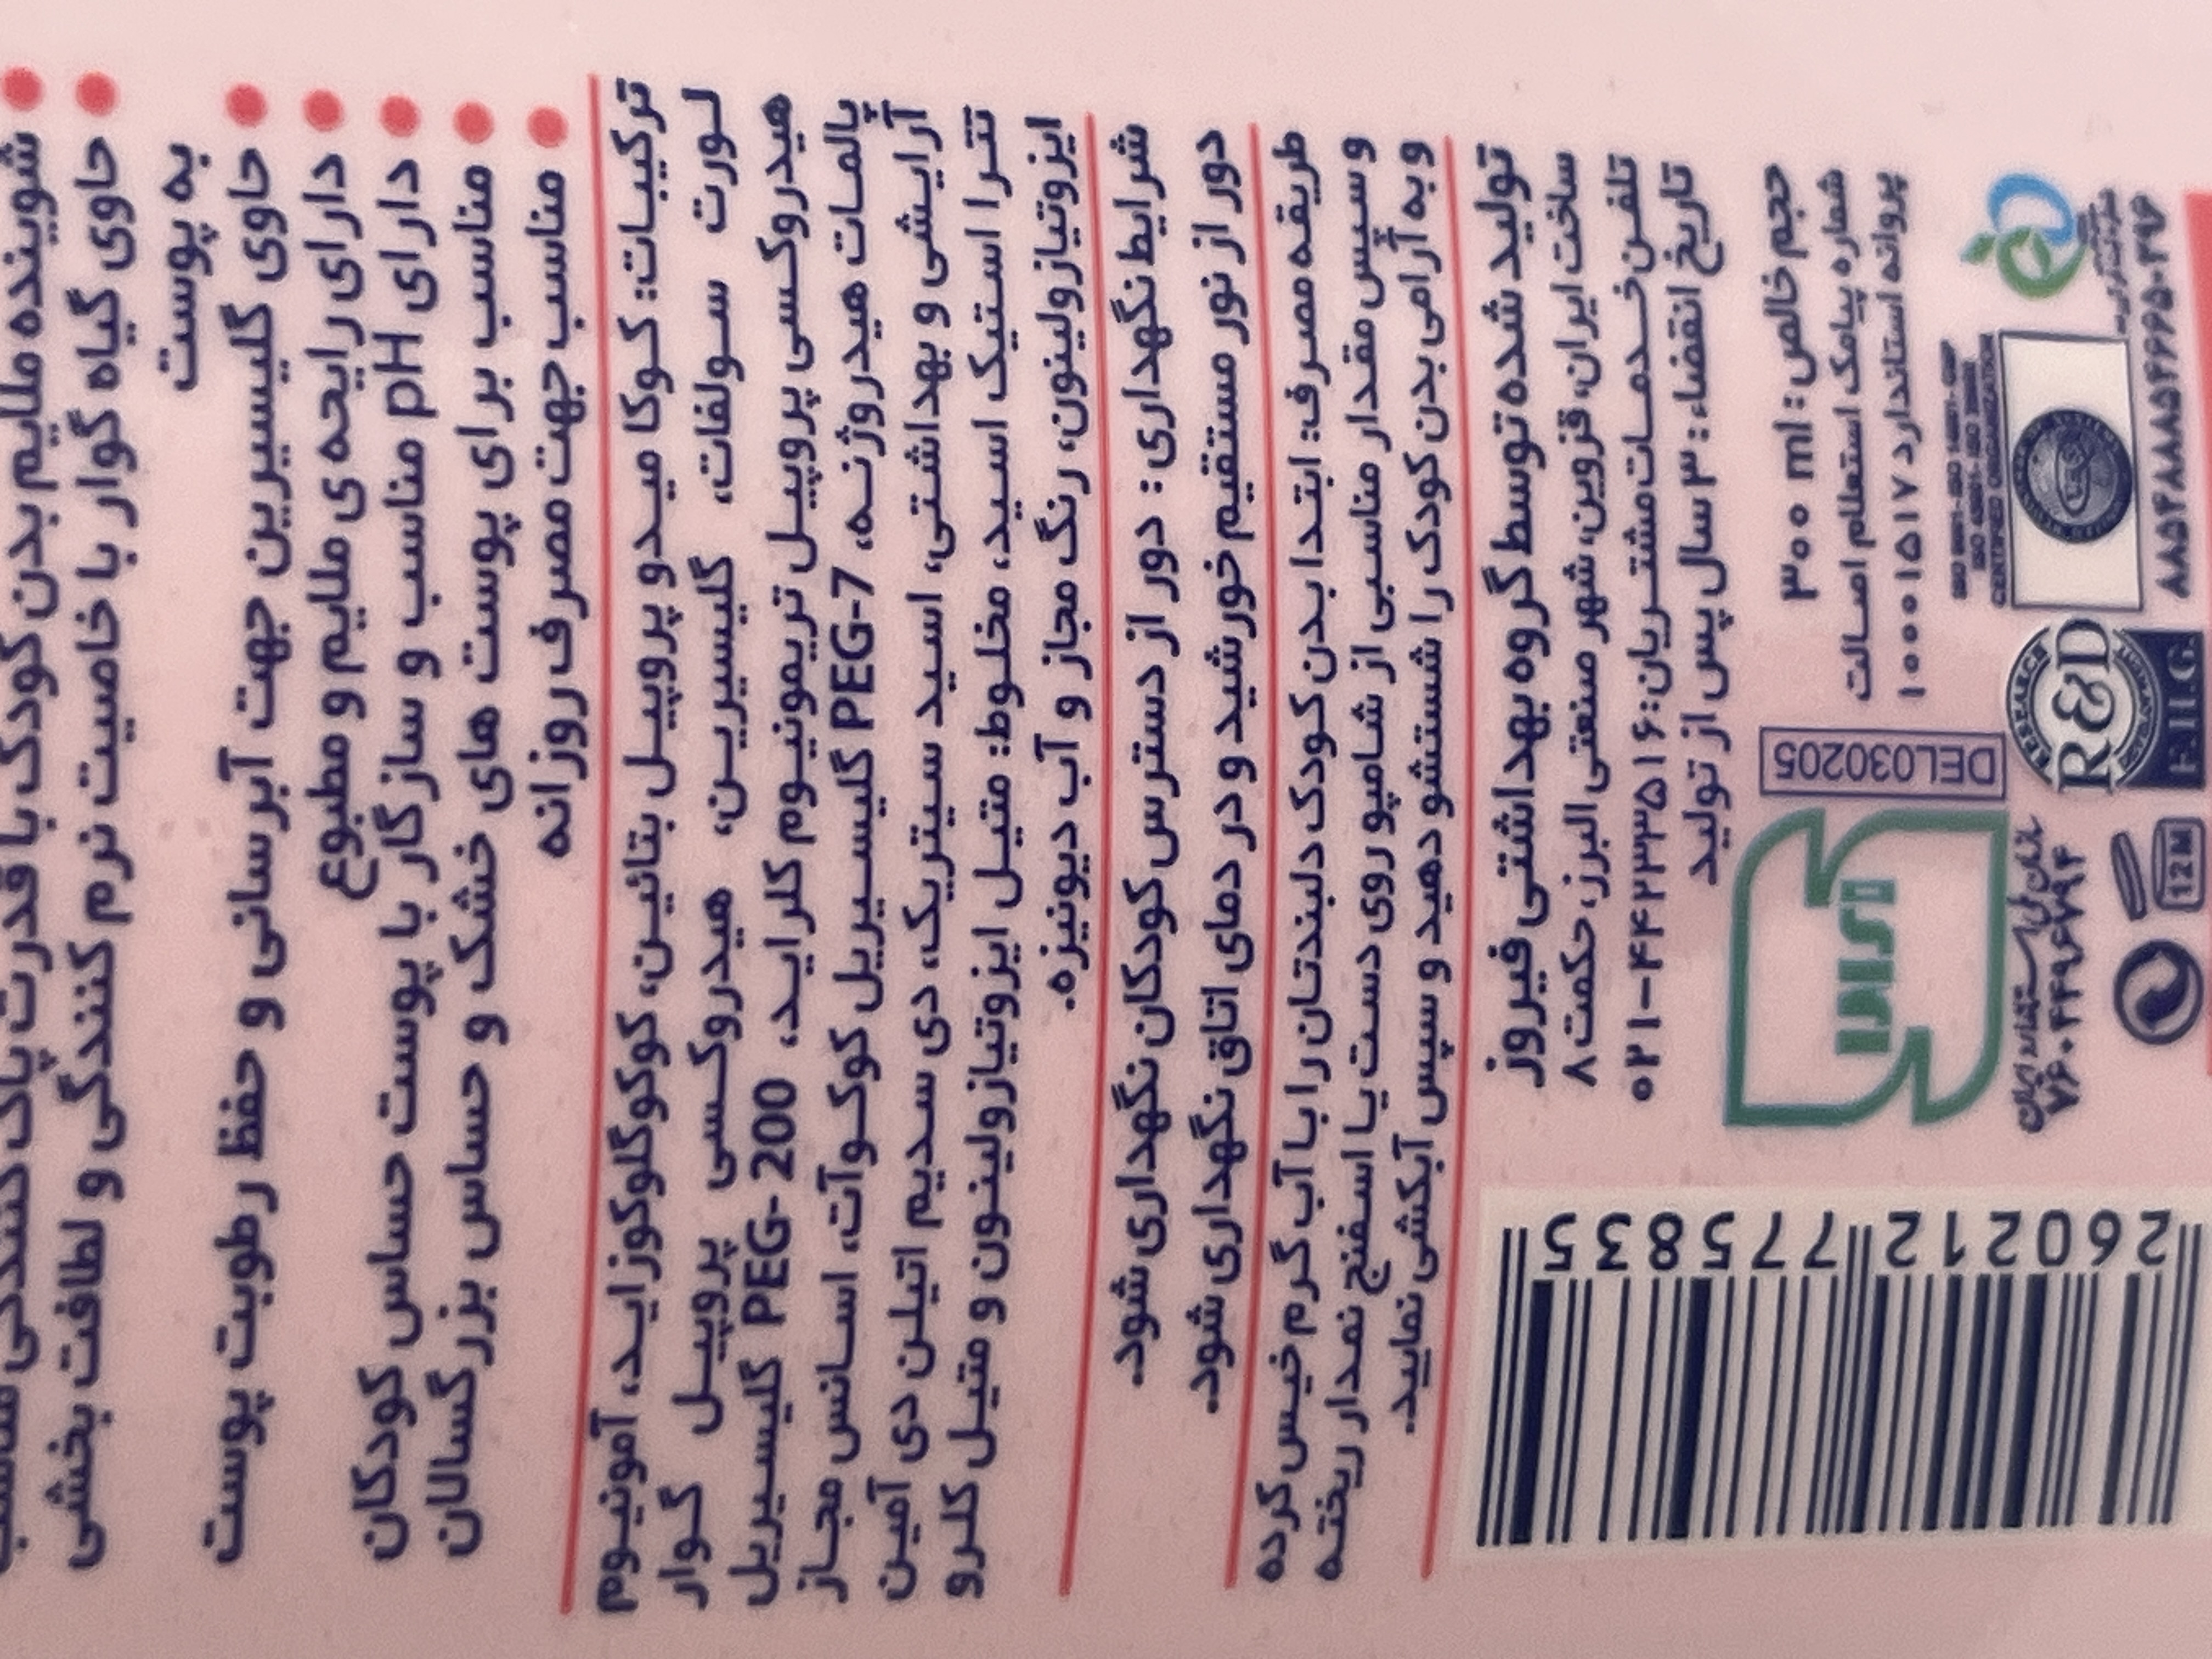 شوینده ملایم بدن کودک با قدرت پاک کنندگی
حاوی گیاه گوار با خاصیت نرم کنندگی و لطافت بخشی
به پوست
حاوی گلیسیرین جهت آبرسانی و حفظ رطوبت پوست
دارای رایحه ی ملایم و مطبوع
دارای pH مناسب و سازگار با پوست حساس کودکان
مناسب برای پوست های خشک و حساس بزرگسالان
مناسب جهت مصرف روزانه
ترکیبات: کوکا میدو پروپیل بتائین، کوکوگلوکوزاید، آمونیوم
لورت سولفات، گلیسیرین، هیدروکسی پروپیل گوار
هیدروکسی پروپیل تریمونیوم کلراید، PEG- 200 گلیسیریل
پالمات هیدروژنه، PEG-7 گلیسیریل کوکوآت، اسانس مجاز
آرایشی و بهداشتی، اسید سیتریک، دی سدیم اتیلن دی آمین
تترا استیک اسید، مخلوط: متیل ایزوتیازولینون و متیل کلرو
ایزوتیازولینون، رنگ مجاز و آب دیونیزه.
شرایط نگهداری: دور از دسترس کودکان نگهداری شود.
دور از نور مستقیم خورشید و در دمای اتاق نگهداری شود.
طریقه مصرف: ابتدا بدن کودک دلبندتان را با آب گرم خیس کرده
و سپس مقدار مناسبی از شامپو روی دست یا اسفنج نمدار ریخته
و به آرامی بدن کودک را شستشو دهید و سپس آبکشی نمایید.
تولید شده توسط گروه بهداشتی فیروز
ساخت ایران، قزوین، شهر صنعتی البرز، حکمت ۸
تلفن خدمات مشتریان: ۴۴۲۳۳۵۱۶-۰۲۱
تاریخ انقضاء: ۳ سال پس از تولید
حجم خالص: ۳۰۰ ml
شماره پیامک استعلام اصالت
پروانه استاندارد ۱۰۰۰۱۵۱۷
DEL030205
CERTIFIED ORGANIZATION
R&D
12M
2602127775835